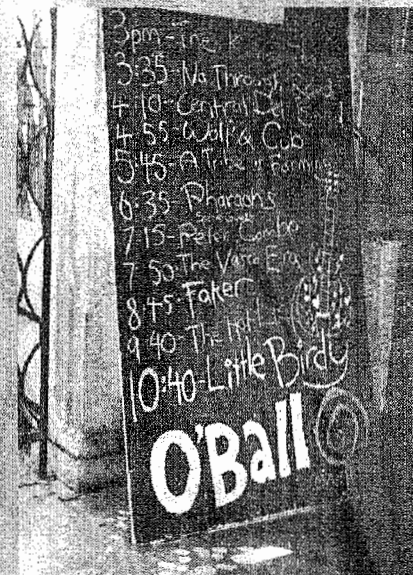 3pm-The
3:35-No Through Road
4-10-Central Det
4 55-Wolf & Cub
5:45-A Tribe
6:35 Pharaohs
7 15-Peter Combo
7 50-The Vasco Era
8:45-Faker
9 40-The Hot
10:40-Little Birdy
O'Ball